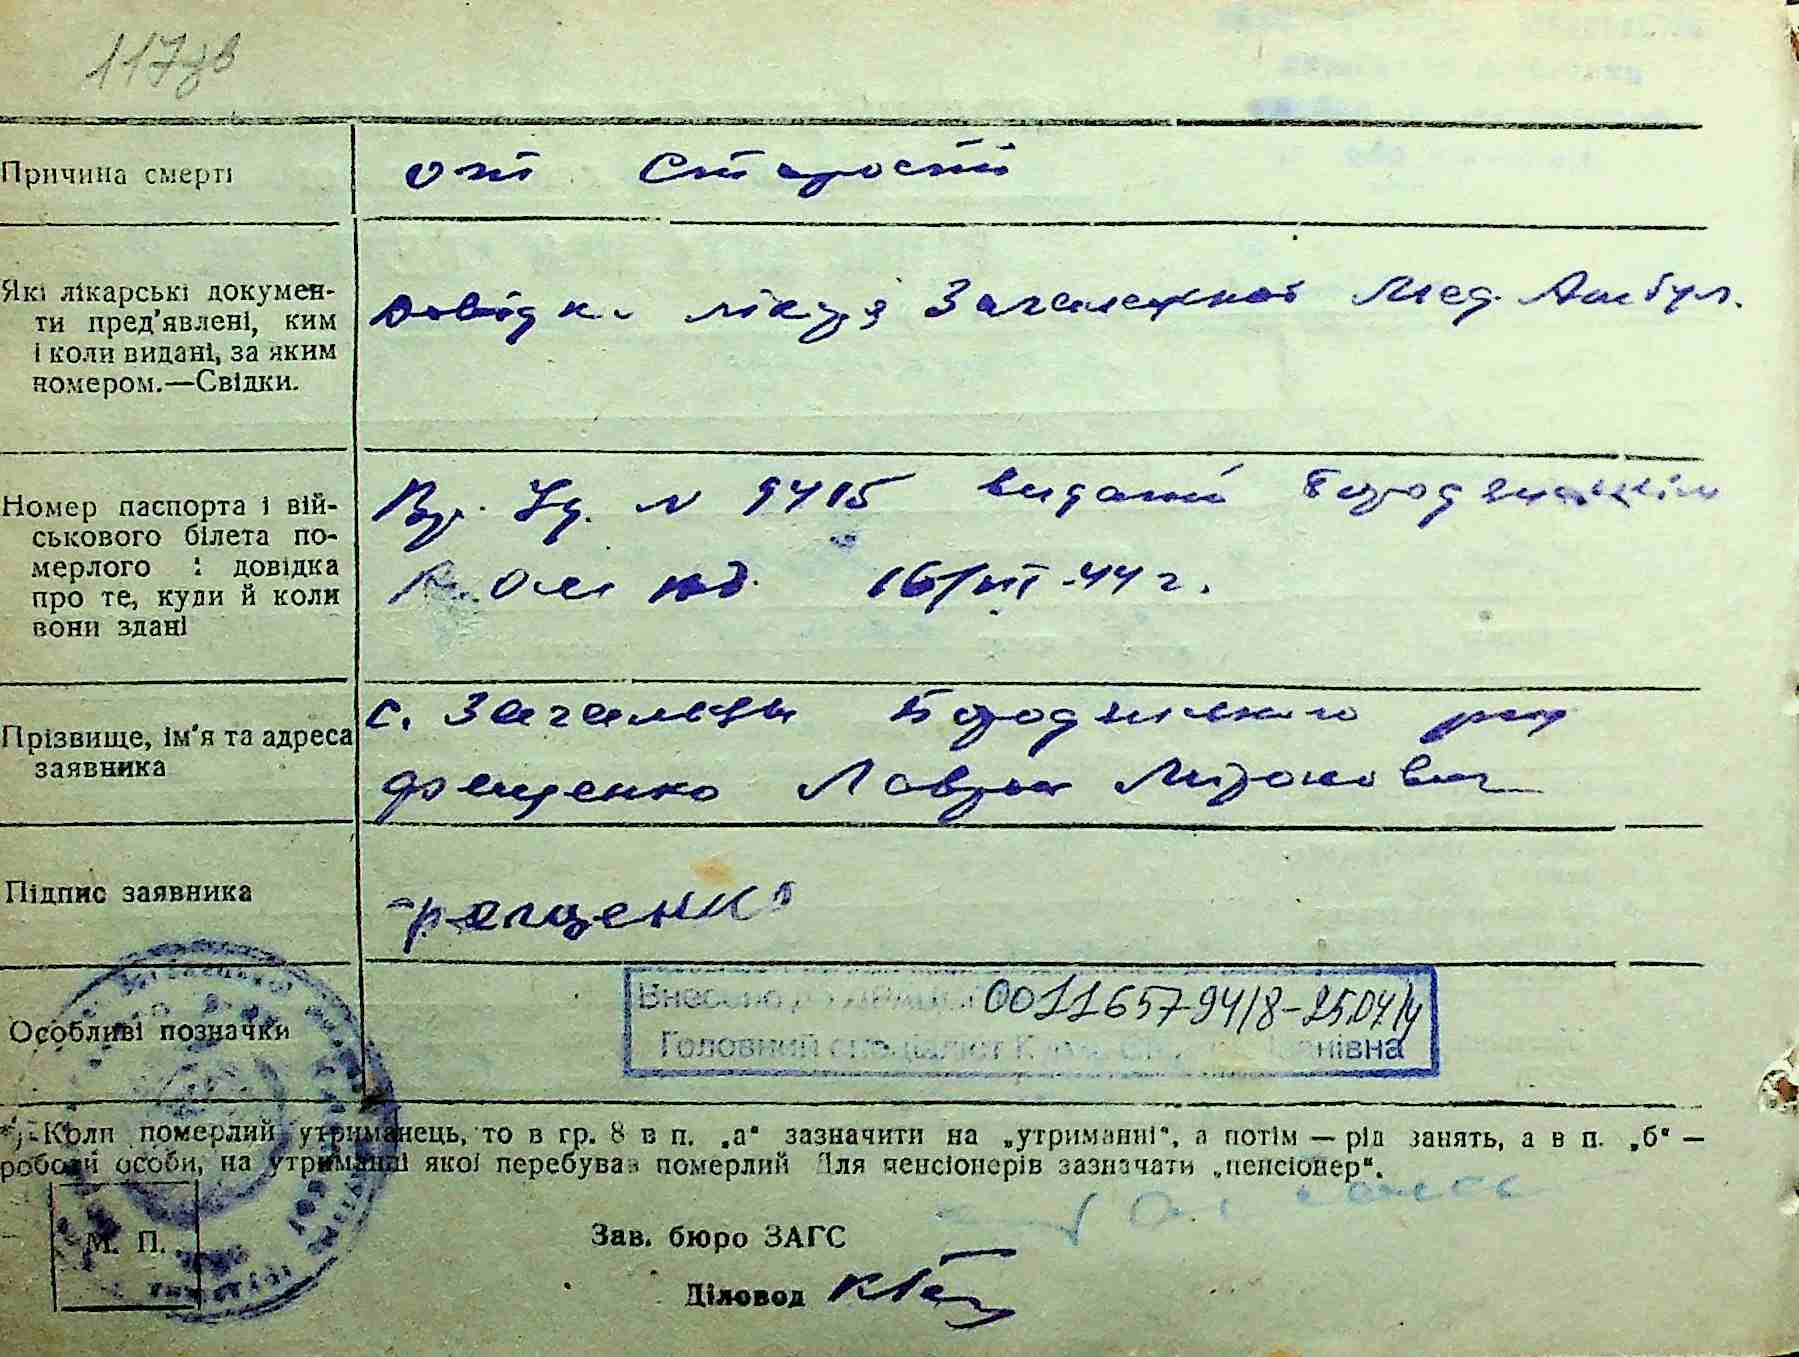 117зв
Причина смерті
от старости
Які лікарські докумен-
ти пред'явлені, ким
і коли видані, за яким
номером.—Свідки.
Довідка лікаря Загальської Мед. Амбул.
Номер паспорта і вій-
ськового білета по-
мерлого і довідка
про те, куди й коли
вони здані
Вр. Уд. N 9415 видані Бородянським
16/VII-44 г.
Прізвище, ім'я та адреса
заявника
с. Загальцы Бородянського р-ну
Фещенко Лаврін Миронович
Підпис заявника
Фещенко
Особливі позначки
Внесено до 00116579418-25.04.14
Головний спеціаліст
*) Коли померлий утриманець, то в гр. 8 в п. „а" зазначити на „утриманні", а потім — рід занять, а в п. „б" —
роботи особи, на утриманні якої перебував померлий Для пенсіонерів зазначати „пенсіонер".
М. П.
Зав. бюро ЗАГС
Діловод